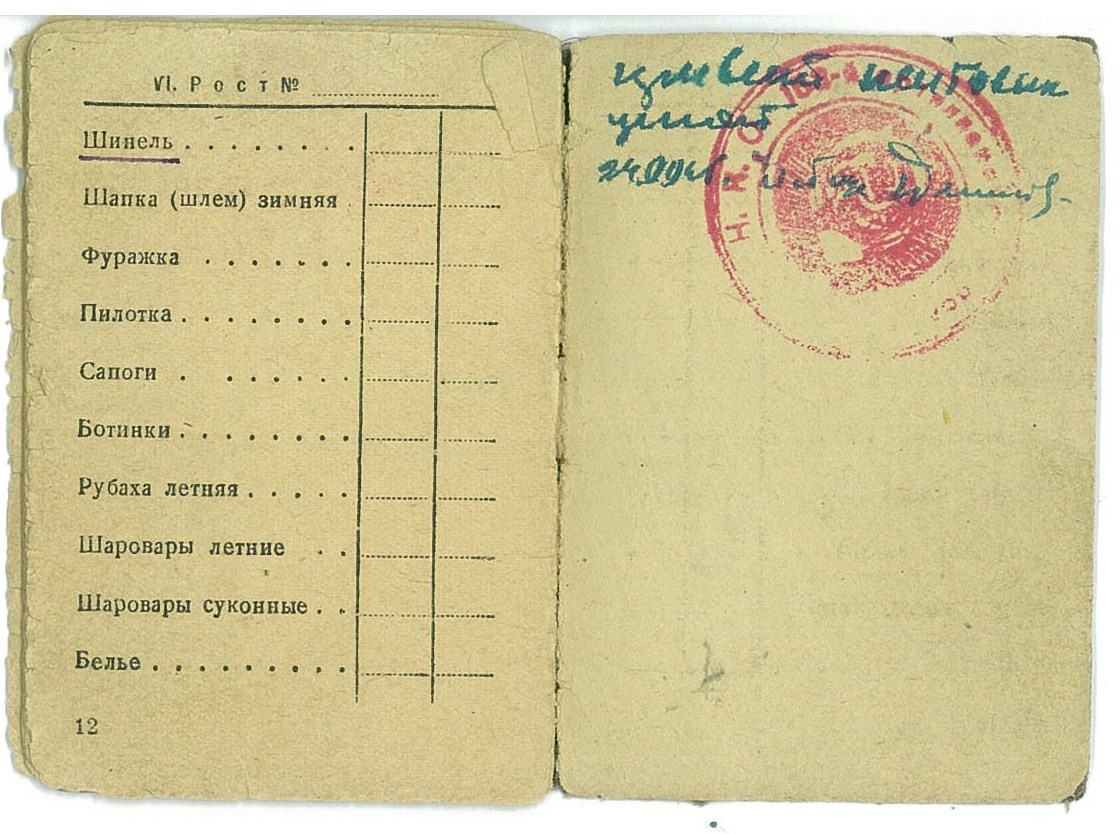 VI. Рост №
Шинель
Шапка (шлем) зимняя
Фуражка
Пилотка
Сапоги
Ботинки
Рубаха летняя
Шаровары летние
Шаровары суконные
Белье
12
Н. К. О.